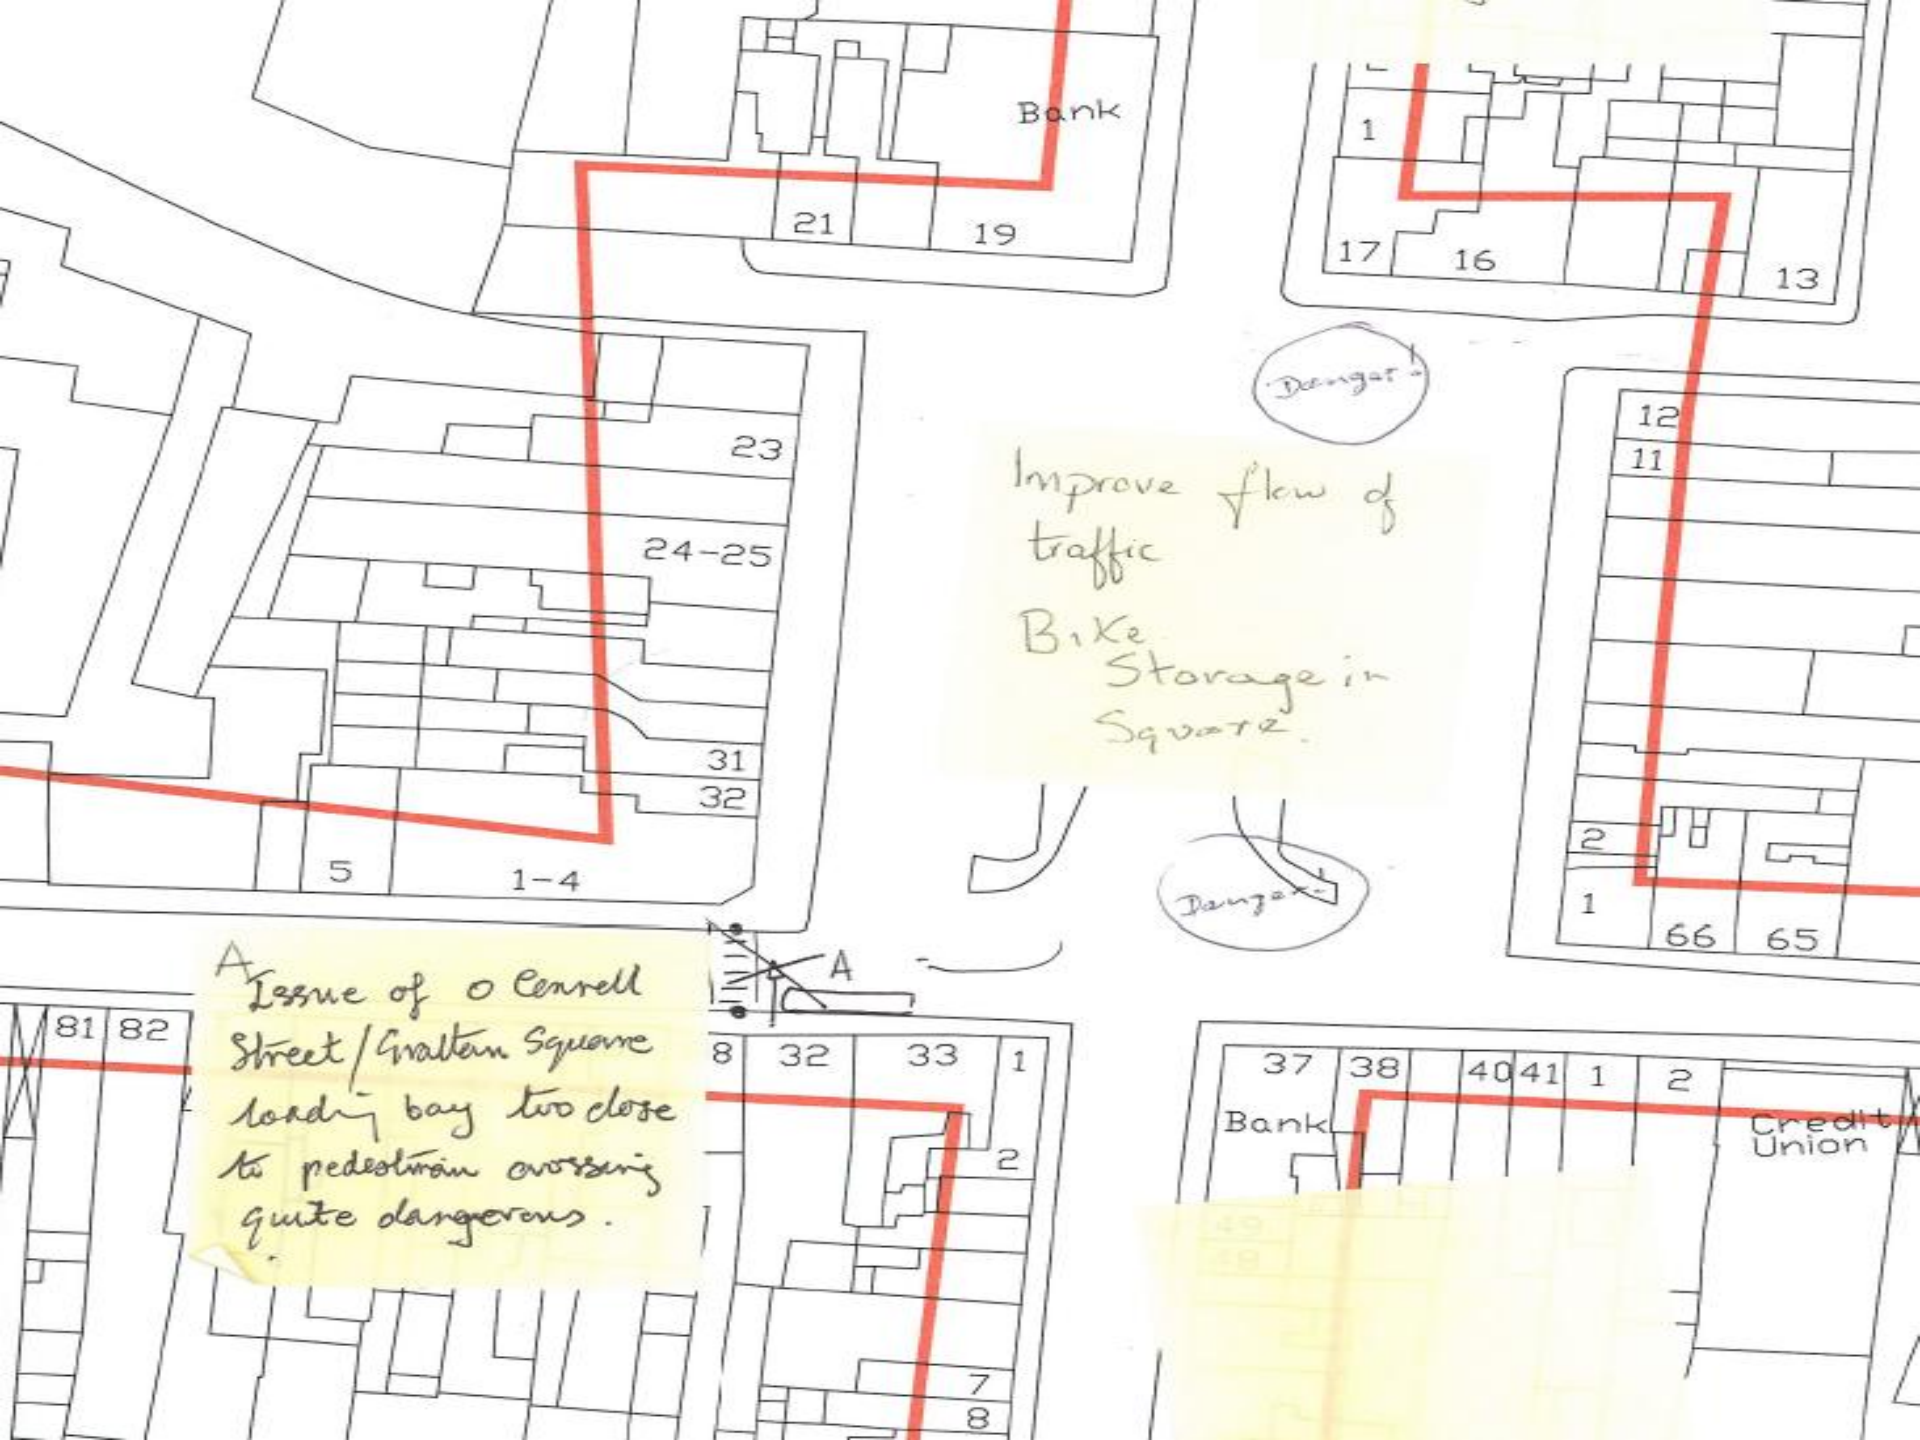 Bank
1
21
19
17
16
13
Danger!
12
11
23
Improve flow of
traffic
24-25
Bike
Storage in
Square.
31
32
2
5
1-4
Danger!
1
66
65
A
A
Issue of O Connell
Street/Grattan Square
loading bay too close
to pedestrian crossing
quite dangerous.
81
82
8
32
33
1
2
37
38
40
41
1
2
Bank
Credit
Union
49
48
7
8